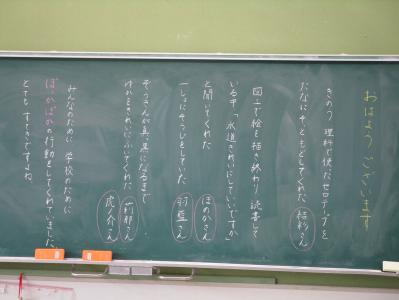 おはよう ございます
きのう 理科で使ったセロテープを
たなに そっともどしてくれた 結衫さん
図工で絵を描き終わり 読書して
いる中「水道きれいにしていいですか」
と聞いてくれた ほのかさん
一しょにそうじをしていた 羽藍さん
ぞうきんが真っ黒になるまで
ゆかをきれいにふいてくれた 莉那さん
虎ノ介さん
みんなのために 学校のために
ぽっかぽかの行動をしてくれていました
とても すてきですね